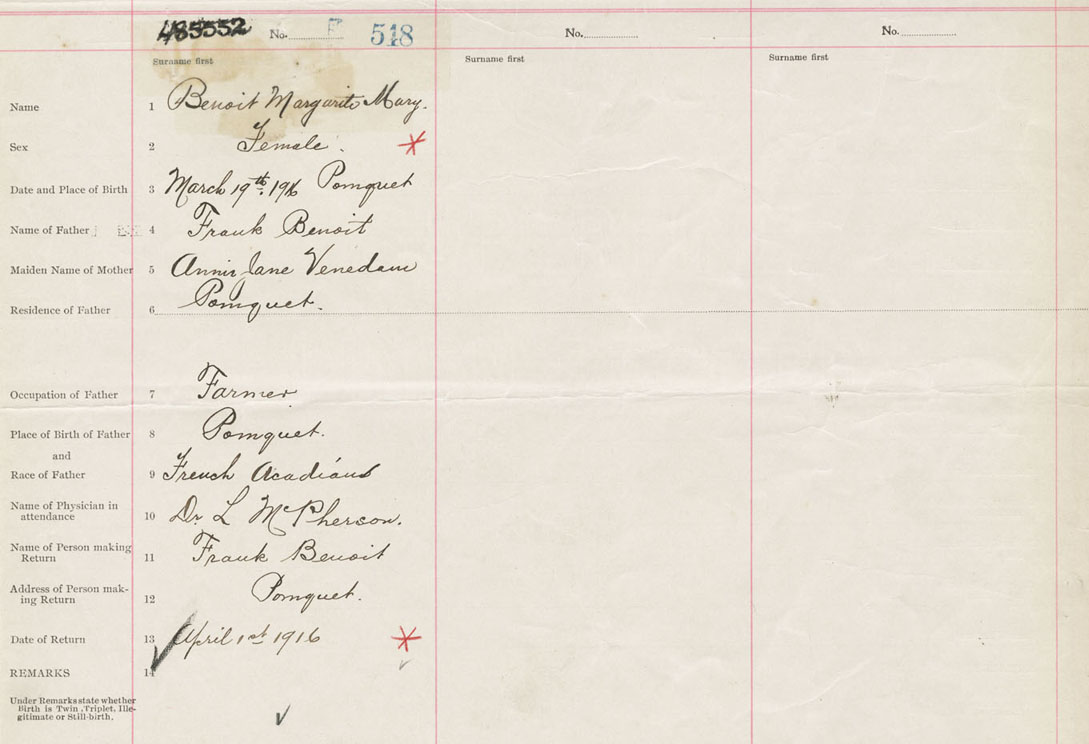 485552 No. F 548 No. No.
Surname first Surname first Surname first
Name 1 Benoit Margarite Mary.
Sex 2 Female.
Date and Place of Birth 3 March 19th. 1916 Pomquet
Name of Father 4 Frank Benoit
Maiden Name of Mother 5 Annie Jane Venedam
Residence of Father 6 Pomquet.
Occupation of Father 7 Farmer
Place of Birth of Father 8 Pomquet.
and
Race of Father 9 French Acadians
Name of Physician in
attendance 10 Dr. L McPherson.
Name of Person making
Return 11 Frank Benoit
Address of Person mak-
ing Return 12 Pomquet.
Date of Return 13 April 1st 1916
REMARKS 14
Under Remarks state whether
Birth is Twin, Triplet, Ille-
gitimate or Still-birth.